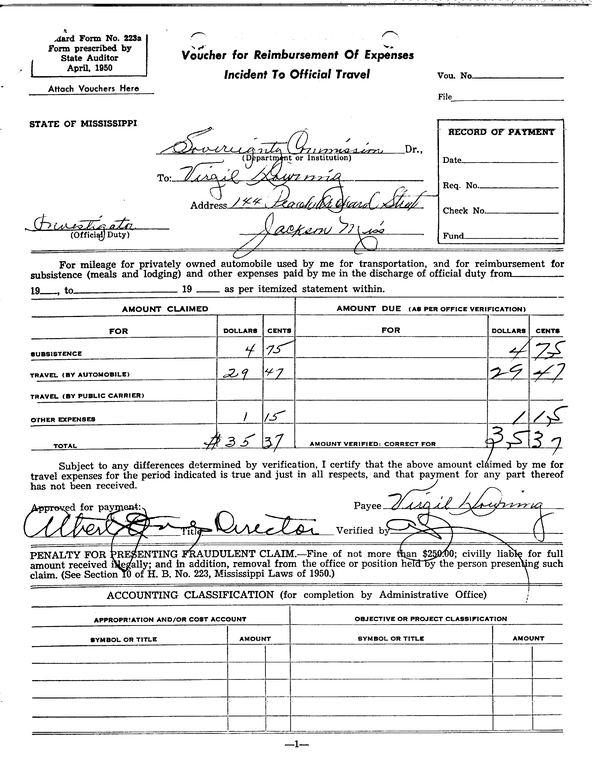 dard Form No. 223a
Form prescribed by
State Auditor
April, 1950
Attach Vouchers Here
Voucher for Reimbursement Of Expenses
Incident To Official Travel
Vou. No.
File
STATE OF MISSISSIPPI
Sovereignty Commission Dr.,
(Department or Institution)
To: Virgil Downing
Address 144 Peach Orchard Street
Jackson Miss
Investigator
(Official Duty)
RECORD OF PAYMENT
Date
Req. No.
Check No.
Fund
For mileage for privately owned automobile used by me for transportation, and for reimbursement for
subsistence (meals and lodging) and other expenses paid by me in the discharge of official duty from
19 , to 19 as per itemized statement within.
AMOUNT CLAIMED AMOUNT DUE (AS PER OFFICE VERIFICATION)
FOR DOLLARS CENTS FOR DOLLARS CENTS
SUBSISTENCE 4 75 4 75
TRAVEL (BY AUTOMOBILE) 29 47 29 47
TRAVEL (BY PUBLIC CARRIER)
OTHER EXPENSES 1 15 1 15
TOTAL $35 37 AMOUNT VERIFIED: CORRECT FOR 35 37
Subject to any differences determined by verification, I certify that the above amount claimed by me for
travel expenses for the period indicated is true and just in all respects, and that payment for any part thereof
has not been received.
Approved for payment: Payee Virgil Downing
Albert Jones Title Director Verified by
PENALTY FOR PRESENTING FRAUDULENT CLAIM.—Fine of not more than $250.00; civilly liable for full
amount received illegally; and in addition, removal from the office or position held by the person presenting such
claim. (See Section 10 of H. B. No. 223, Mississippi Laws of 1950.)
ACCOUNTING CLASSIFICATION (for completion by Administrative Office)
APPROPRIATION AND/OR COST ACCOUNT OBJECTIVE OR PROJECT CLASSIFICATION
SYMBOL OR TITLE AMOUNT SYMBOL OR TITLE AMOUNT
—1—